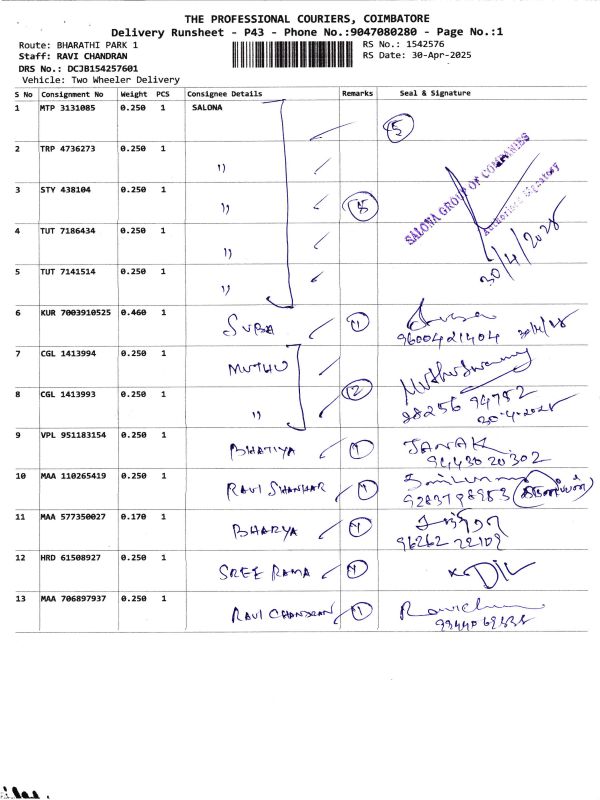 THE PROFESSIONAL COURIERS, COIMBATORE
Delivery Runsheet - P43 - Phone No.:9047080280 - Page No.:1
Route: BHARATHI PARK 1
RS No.: 1542576
Staff: RAVI CHANDRAN
RS Date: 30-Apr-2025
DRS No.: DCJB154257601
Vehicle: Two Wheeler Delivery
S No Consignment No Weight PCS Consignee Details Remarks Seal & Signature
1 MTP 3131085 0.250 1 SALONA
5
2 TRP 4736273 0.250 1 "
3 STY 438104 0.250 1 " 5
SALONA GROUP OF COMPANIES
Authorised Signatory
30/4/2025
4 TUT 7186434 0.250 1 "
5 TUT 7141514 0.250 1 "
6 KUR 7003910525 0.460 1 SUBA 1
9600421404 30/4/25
7 CGL 1413994 0.250 1 MUTHU
Muthuswamy
8 CGL 1413993 0.250 1 " 2
98256 94752
30-4-2025
9 VPL 951183154 0.250 1 BHATIYA 1 JANAK
9443020302
10 MAA 110265419 0.250 1 RAVI SHANKAR 1
9283798953
11 MAA 577350027 0.170 1 BHARYA 1
96262 22109
12 HRD 61508927 0.250 1 SREE RAMA 1
13 MAA 706897937 0.250 1 RAVI CHANDRAN 1 Ravichan